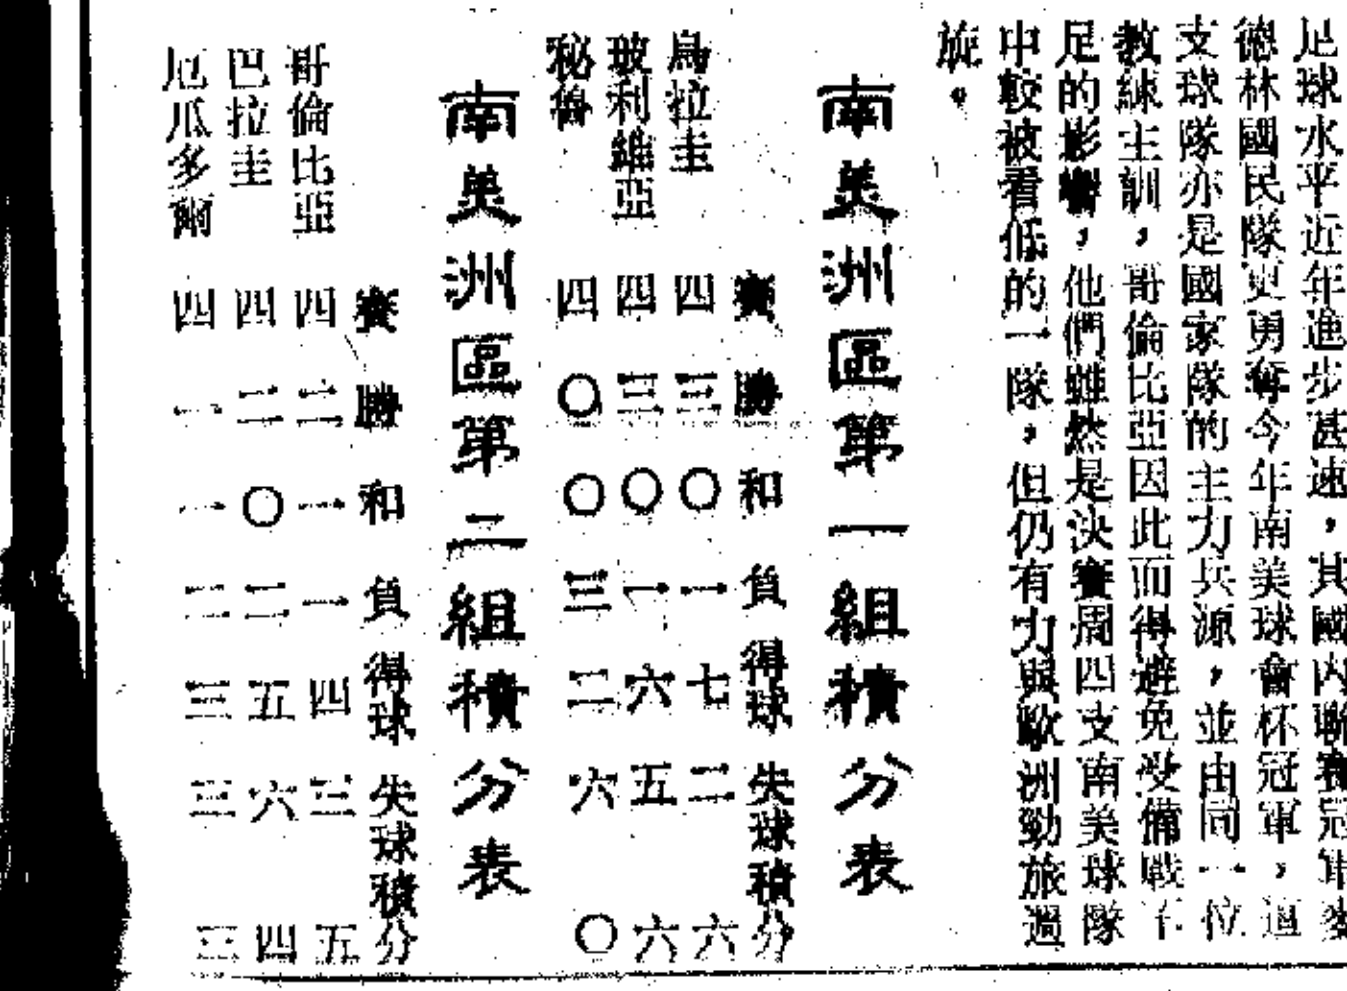 足球水平近年進步甚速，其國內聯賽冠軍麥
德林國民隊更勇奪今年南美球會杯冠軍，這
支球隊亦是國家隊的主力兵源，並由同一位
教練主訓，哥倫比亞因此而得避免受備戰不
足的影響，他們雖然是決賽周四支南美球隊
中較被看低的一隊，但仍有力與歐洲勁旅週
旋。
南美洲區第一組積分表
賽 勝 和 負 得球 失球 積分
烏拉圭 四 三 〇 一 七 二 六
玻利維亞 四 三 〇 一 六 五 六
秘魯 四 〇 〇 三 二 六 〇
南美洲區第二組積分表
賽 勝 和 負 得球 失球 積分
哥倫比亞 四 二 一 一 四 三 五
巴拉圭 四 二 〇 二 五 六 四
厄瓜多爾 四 一 一 二 三 三 三